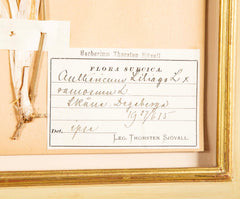 Herbarium Thorsten Sjövall
FLORA SUECICA.
Anthericum Liliago L. x
ramosum L.
Skåne Degeberga
19 27/6 15
Det. ipse
LEG. THORSTEN SJÖVALL.